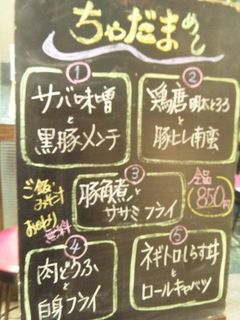 ちゃだまめし
①
サバ味噌
と
黒豚メンチ
②
鶏唐明太とろろ
と
豚ヒレ南蛮
③
豚角煮と
ササミフライ
ご飯
みそ汁
おかわり
無料
全品
850円
④
肉どうふ
と
白身フライ
⑤
ネギトロしらす丼
と
ロールキャベツ